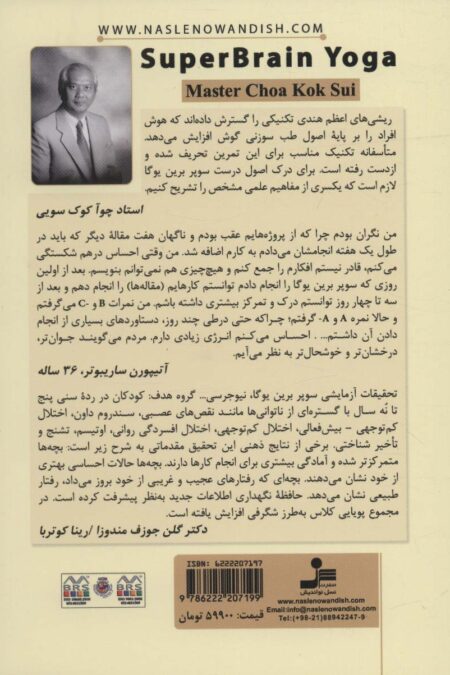 WWW.NASLENOWANDISH.COM
SuperBrain Yoga
Master Choa Kok Sui
ریشی‌های اعظم هندی تکنیکی را گسترش داده‌اند که هوش
افراد را بر پایهٔ اصول طب سوزنی گوش افزایش می‌دهد.
متأسفانه تکنیک مناسب برای این تمرین تحریف شده و
ازدست رفته است. برای درک اصول درست سوپر برین یوگا
لازم است که یکسری از مفاهیم علمی مشخص را تشریح کنیم.
استاد چوآ کوک سویی
من نگران بودم چرا که از پروژه‌هایم عقب بودم و ناگهان هفت مقالهٔ دیگر که باید در
طول یک هفته انجامشان می‌دادم به کارم اضافه شد. من وقتی احساس درهم شکستگی
می‌کنم، قادر نیستم افکارم را جمع کنم و هیچ‌چیزی هم نمی‌توانم بنویسم. بعد از اولین
روزی که سوپر برین یوگا را انجام دادم توانستم کارهایم (مقاله‌ها) را انجام دهم و بعد از
سه تا چهار روز توانستم درک و تمرکز بیشتری داشته باشم. من نمرات B و C- می‌گرفتم
و حالا نمره A و A- گرفتم؛ چراکه حتی درطی چند روز، دستاوردهای بسیاری از انجام
دادن آن داشتم... . احساس می‌کنم انرژی زیادی دارم. مردم می‌گویند جوان‌تر،
درخشان‌تر و خوشحال‌تر به نظر می‌آیم.
آتیپورن ساریبوتر، ۳۶ ساله
تحقیقات آزمایشی سوپر برین یوگا، نیوجرسی... گروه هدف: کودکان در ردهٔ سنی پنج
تا نُه سال با گستره‌ای از ناتوانی‌ها مانند نقص‌های عصبی، سندروم داون، اختلال
کم‌توجهی - بیش‌فعالی، اختلال کم‌توجهی، اختلال افسردگی روانی، اوتیسم، تشنج و
تأخیر شناختی. برخی از نتایج ذهنی این تحقیق مقدماتی به شرح زیر است: بچه‌ها
متمرکزتر شده و آمادگی بیشتری برای انجام کارها دارند. بچه‌ها حالات احساسی بهتری
از خود نشان می‌دهند. بچه‌ای که رفتارهای عجیب و غریبی از خود بروز می‌داد، رفتار
طبیعی نشان می‌دهد. حافظهٔ نگهداری اطلاعات جدید به‌نظر پیشرفت کرده است. در
مجموع پویایی کلاس به‌طرز شگرفی افزایش یافته است.
دکتر گلن جوزف مندوزا /رینا کوتریا
ISBN: 6222207197
9 786222 207199
قیمت: ۵۹۹۰۰ تومان
نسل نواندیش
www.naslenowandish.com
Email:info@naslenowandish.com
Tel:(+98-21)88942247-9
BRS
BRS